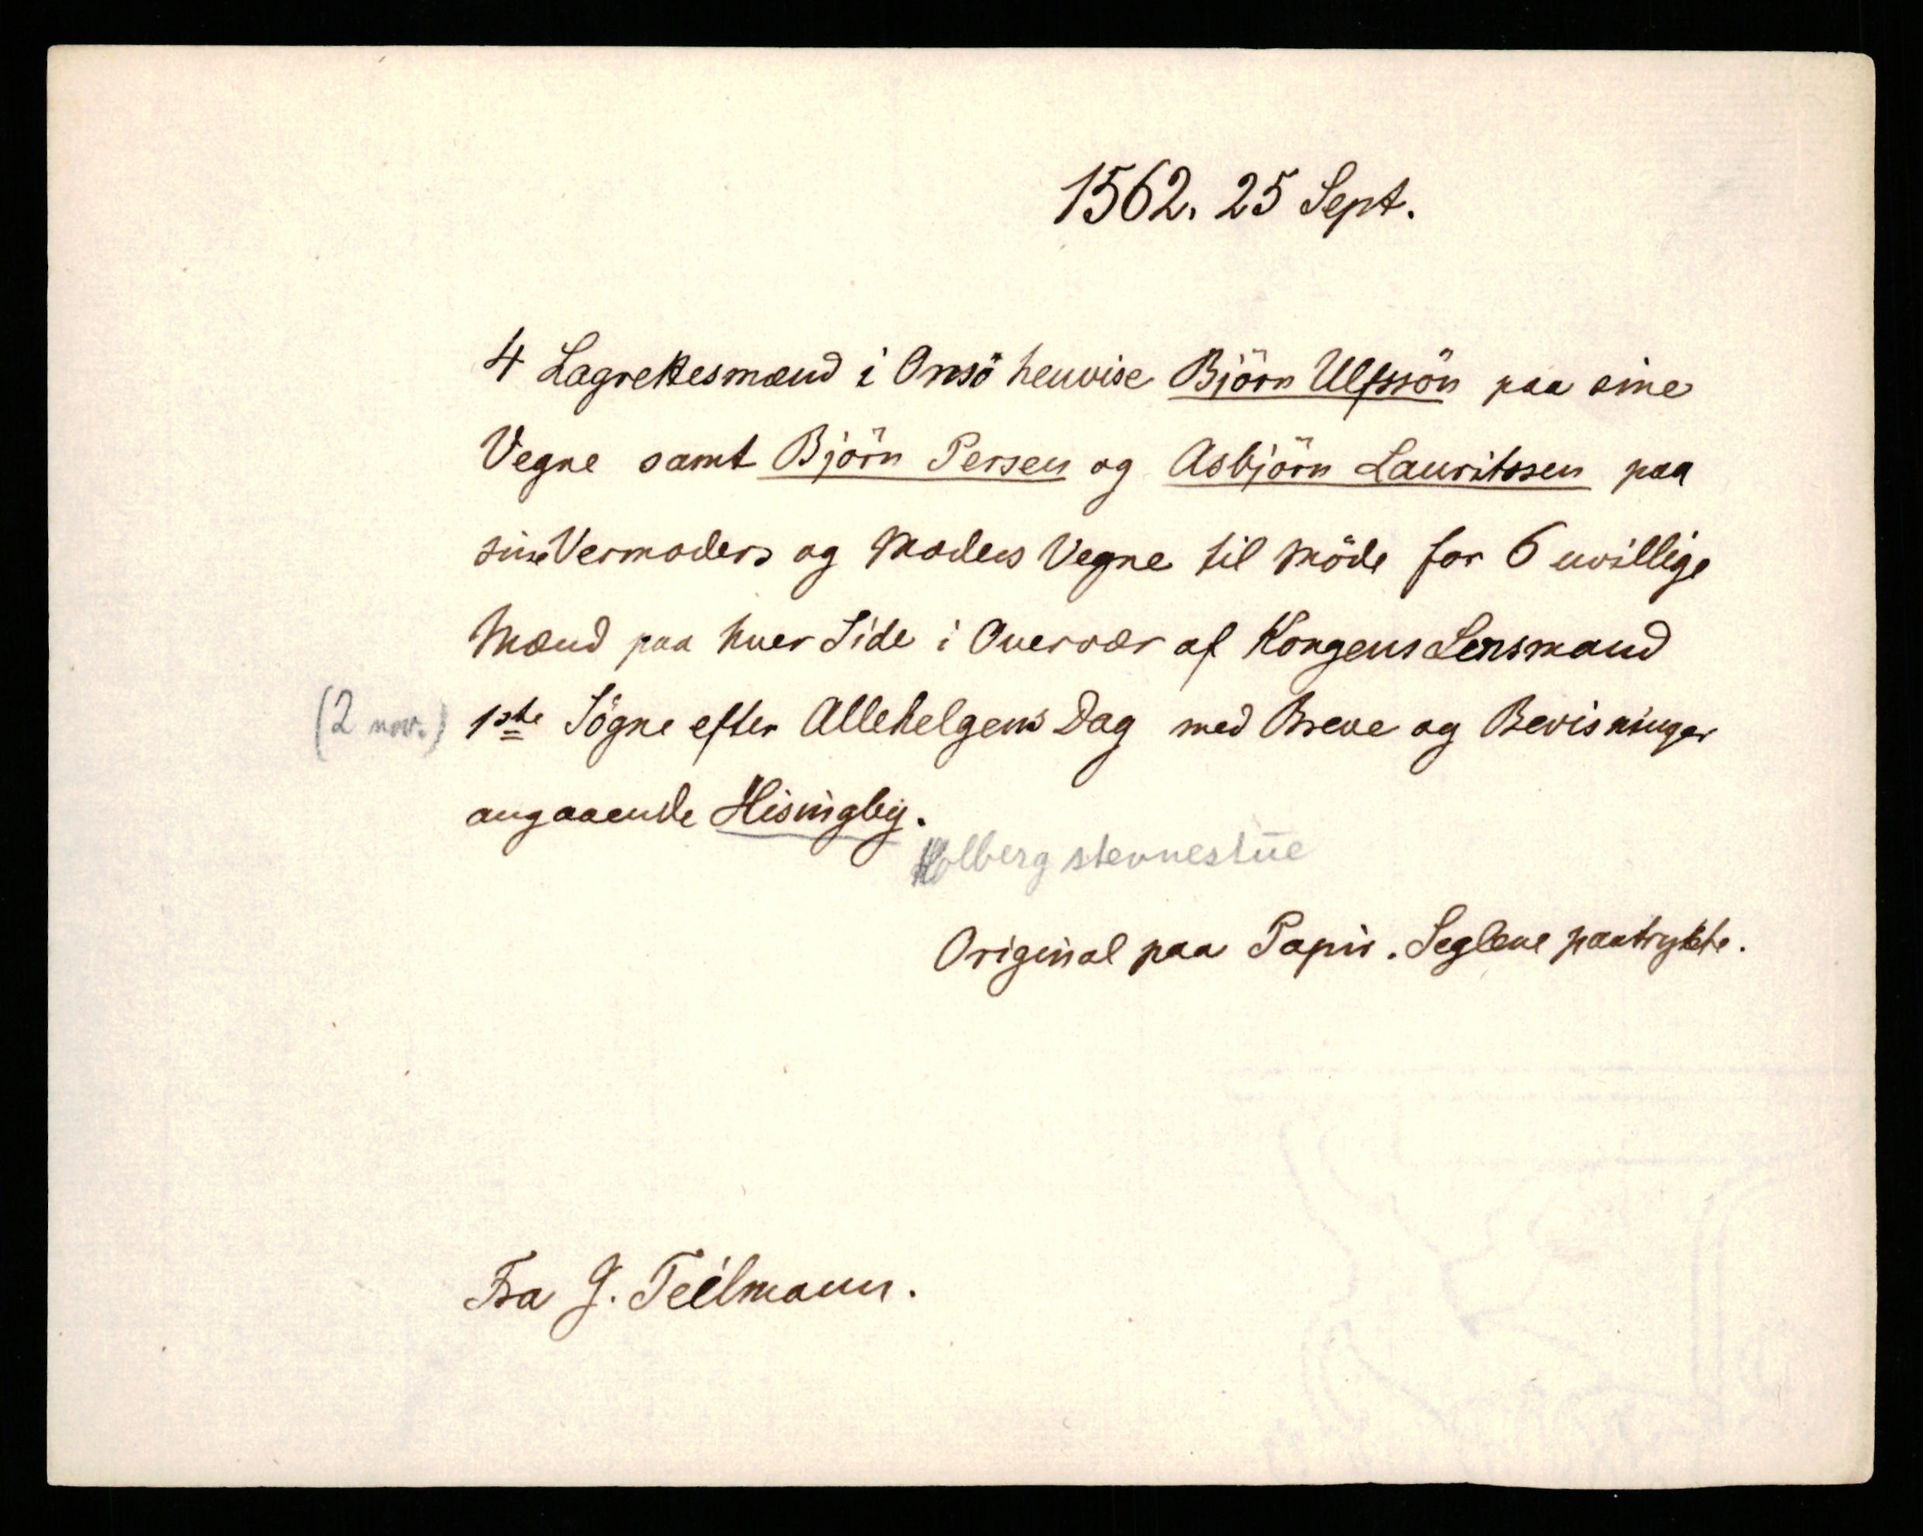 1562. 25 Sept.
4 Lagrettesmænd i Onsö henvise Björn Ulfssön paa sine
Vegne samt Björn Persen og Asbjörn Lauritssen paa
sine Vermoders og Moders Vegne til Möde for 6 uvillige
Mænd paa hver Side i Overvær af Kongens Lensmand
(2 nov.) 1ste Sögne efter Allehelgens Dag med Breve og Bevisninger
angaaende Hisingby.
Holberg stevnestue
Original paa Papir. Seglene paatrykte.
Fra J. Teilmann.